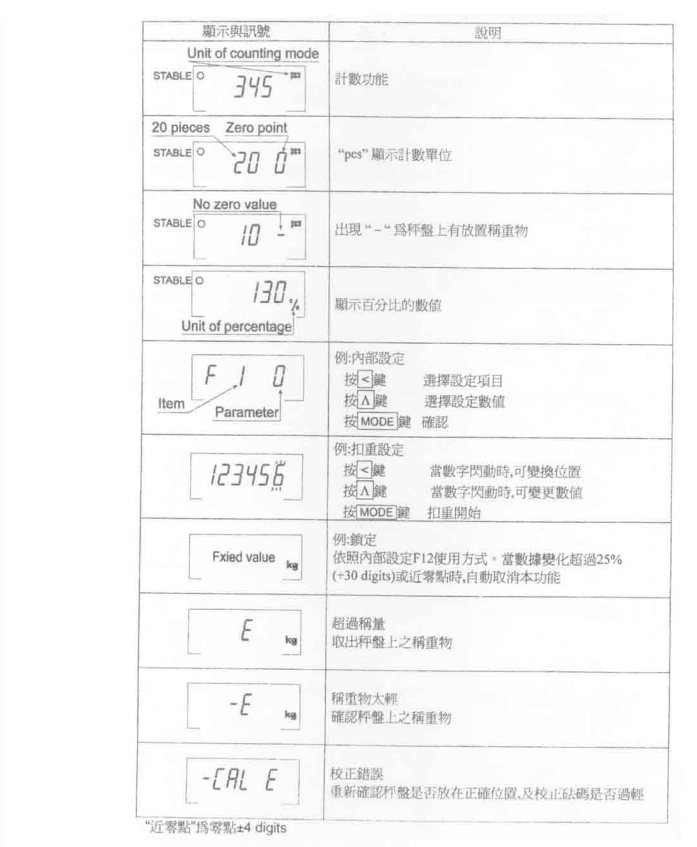 顯示與訊號 說明
Unit of counting mode
STABLE 345 pcs
計數功能
20 pieces Zero point
STABLE 20 0 pcs
“pcs” 顯示計數單位
No zero value
STABLE 10 - pcs
出現 “ – “ 爲秤盤上有放置稱重物
STABLE 130 %
Unit of percentage
顯示百分比的數值
F 1 0
Item
Parameter
例:內部設定
按 < 鍵 選擇設定項目
按 Λ 鍵 選擇設定數值
按 MODE 鍵 確認
123456
例:扣重設定
按 < 鍵 當數字閃動時,可變換位置
按 Λ 鍵 當數字閃動時,可變更數值
按 MODE 鍵 扣重開始
Fxied value kg
例:鎖定
依照內部設定F12使用方式。當數據變化超過25%
(+30 digits)或近零點時,自動取消本功能
E kg
超過稱量
取出秤盤上之稱重物
-E kg
稱重物太輕
確認秤盤上之稱重物
-CAL E
校正錯誤
重新確認秤盤是否放在正確位置,及校正砝碼是否過輕
“近零點”爲零點±4 digits